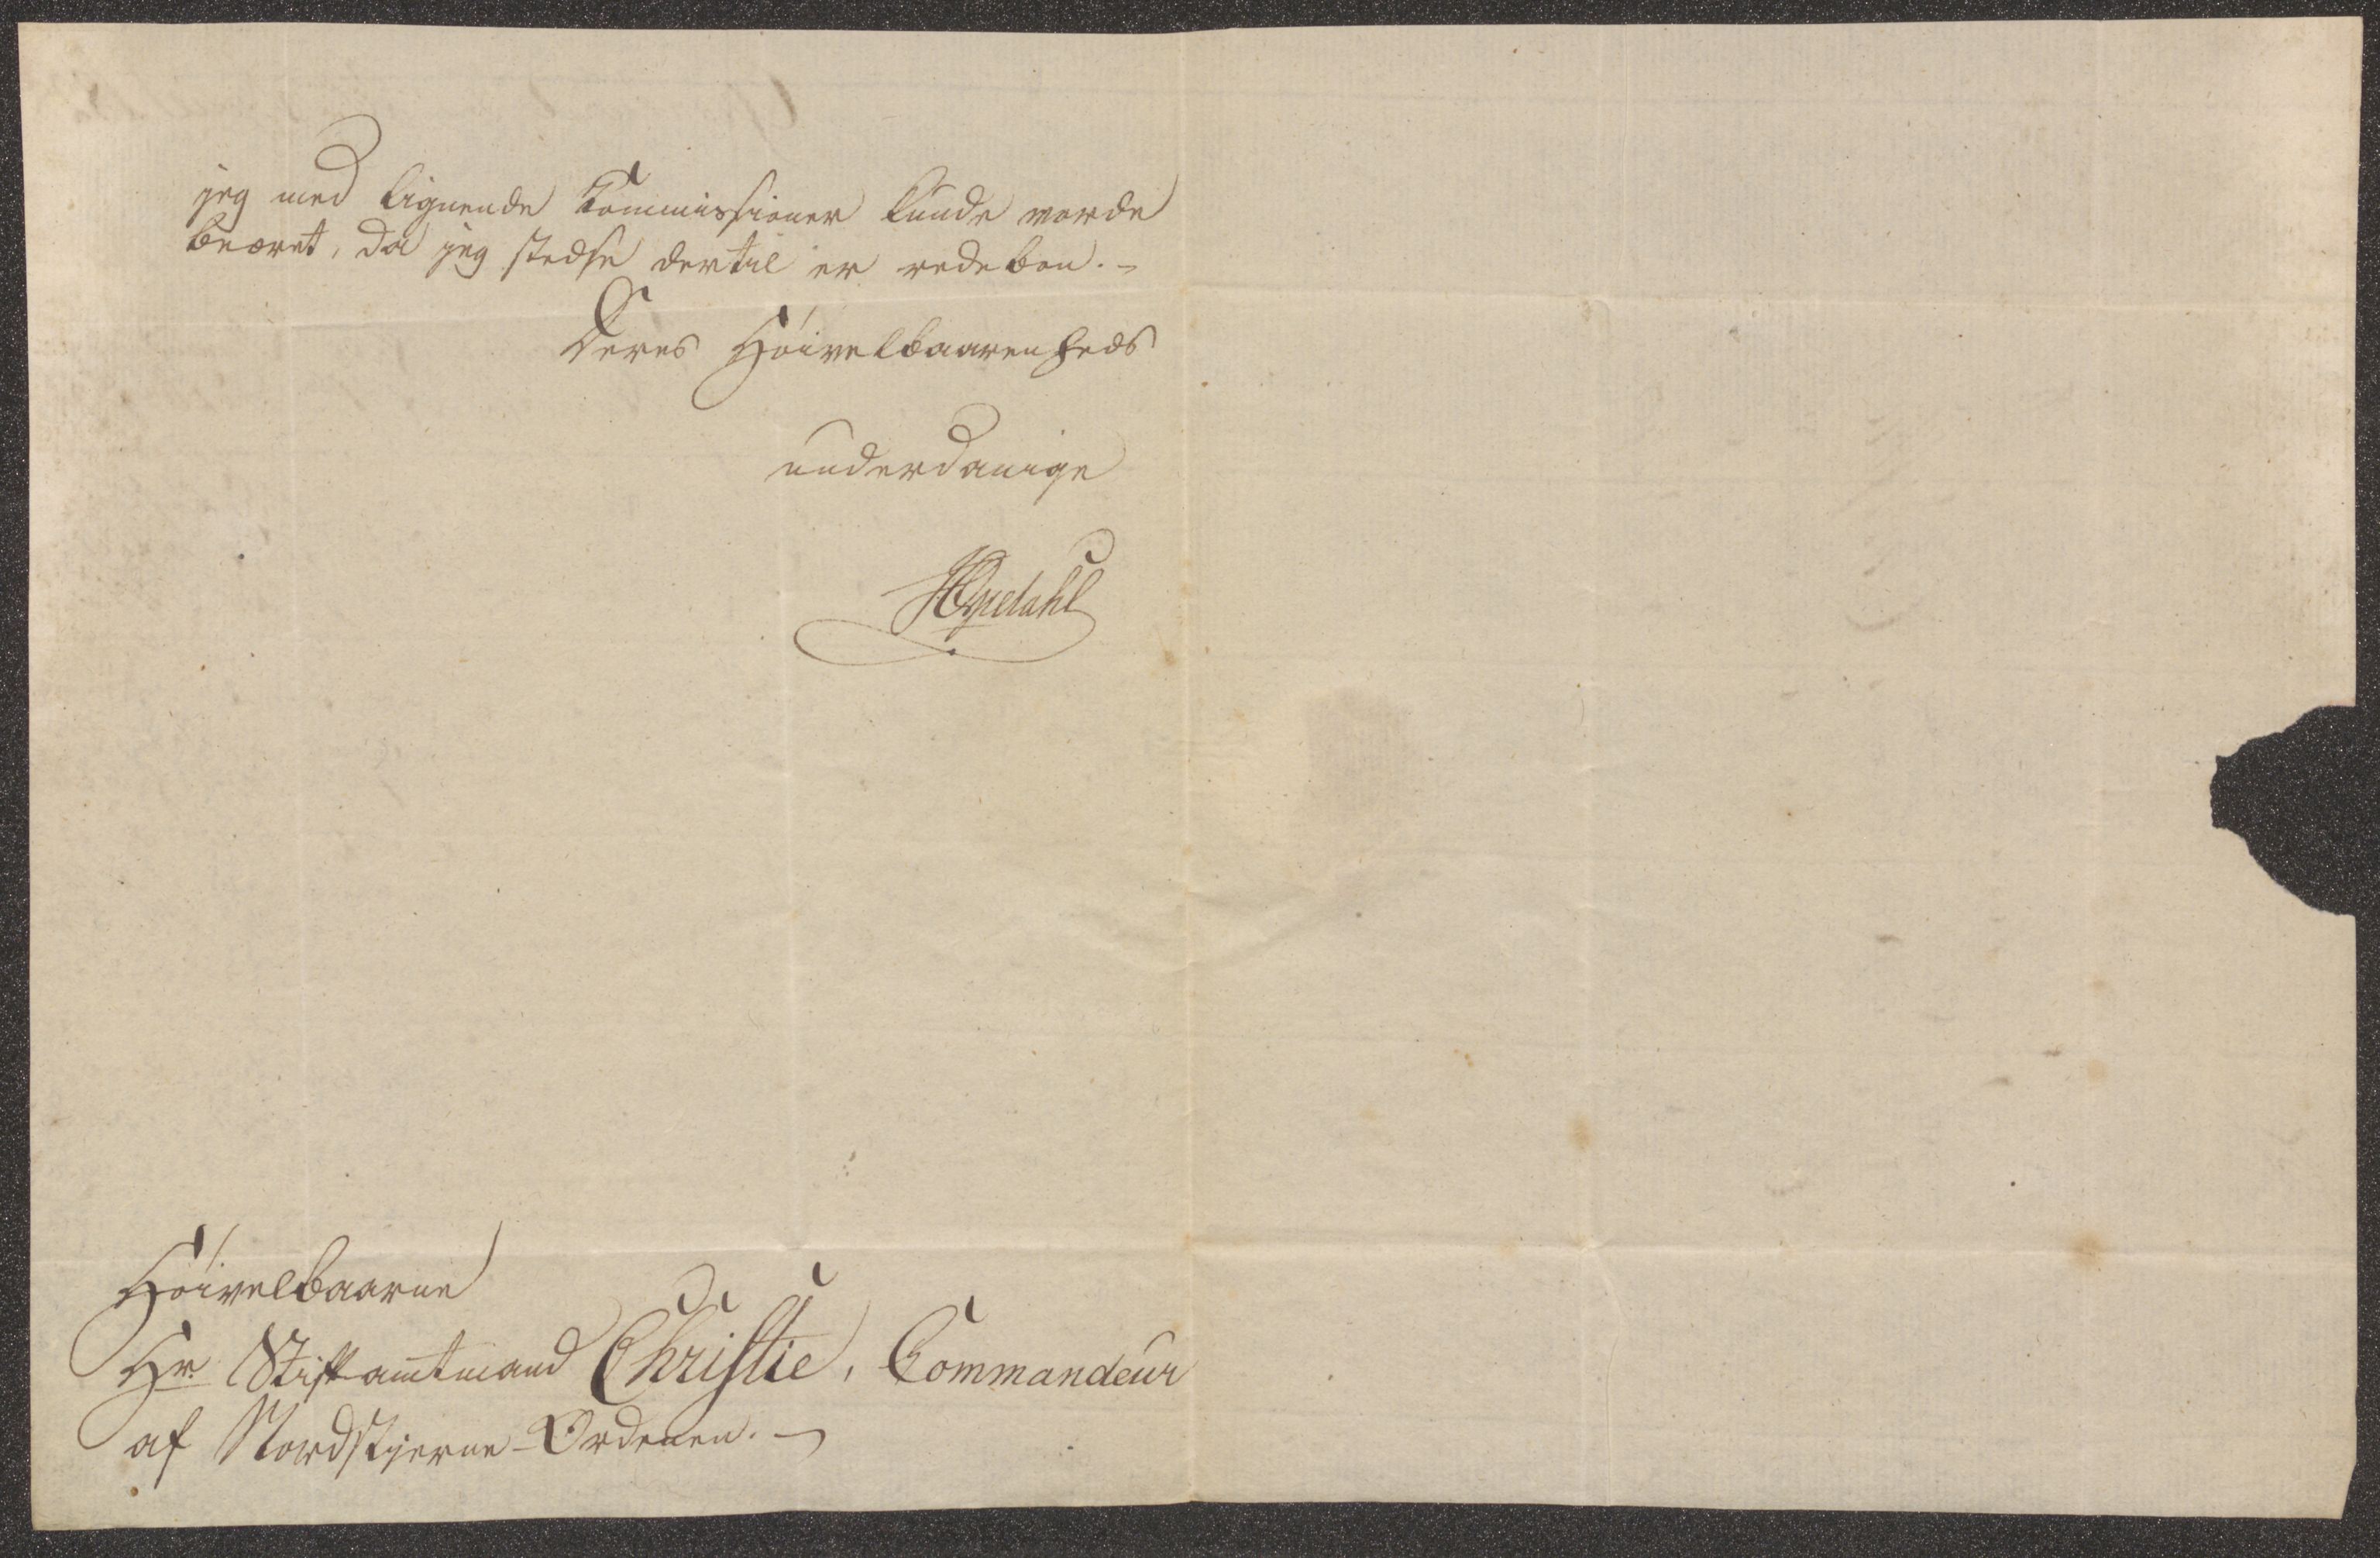 jeg med lignende Kommissioner kunde vorde
beæret, da jeg stedse dertil er redebon. -
Deres Höivelbaarenheds
underdanige
HOpdahl
Höivelbaarne
Hr. Stiftamtmand Christie, Commandeur
af Nordstjerne-Ordenen. -